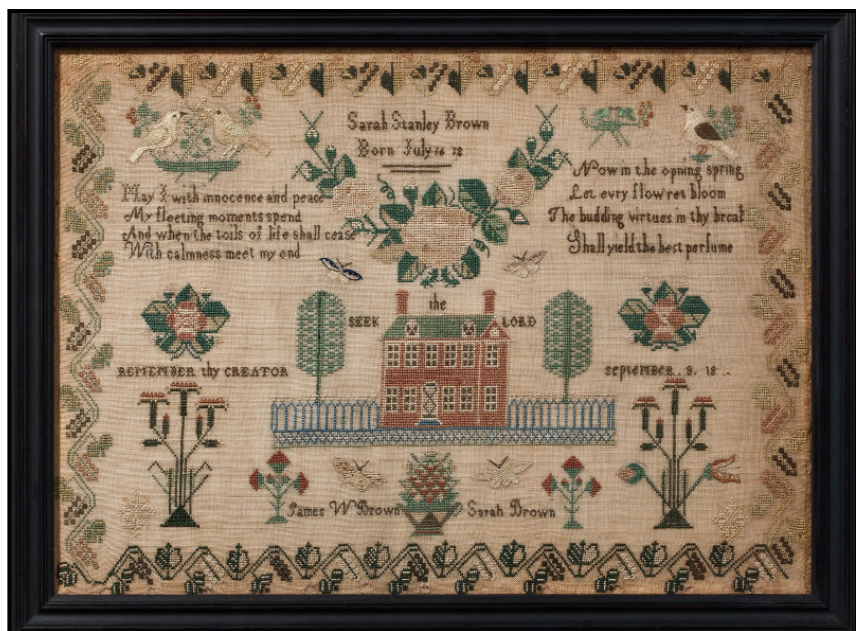 Sarah Stanley Brown
Born July 16 18
May I with innocence and peace
My fleeting moments spend
And when the toils of life shall cease
With calmness meet my end
Now in the opning spring
Let evry flow'ret bloom
The budding virtues in thy breast
Shall yield the best perfume
SEEK the LORD
REMEMBER thy CREATOR
SEPTEMBER 9. 18
James W Brown
Sarah Brown